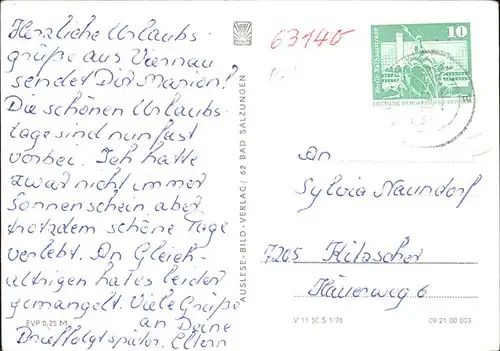 Herzliche Urlaubs-
grüße aus Viernau
sendet Dir Marion!
Die schönen Urlaubs-
tage sind nun fast
vorbei. Ich hatte
zwar nicht immer
Sonnenschein aber
trotzdem schöne Tage
verlebt. An Gleich-
altrigen hat es leider
gemangelt. Viele Grüße
an Deine
Brief folgt später. Eltern
EVP 0,25 M
AUSLESE-BILD-VERLAG / 62 BAD SALZUNGEN
63140
10
DEUTSCHE DEMOKRATISCHE REPUBLIK
An
Sylvia Naundorf
7205 Kitzscher
Häuerweg 6
V 11 50 S 1/76
09 21 00 003